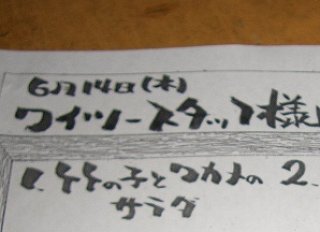 6月14日(木)
ワイツースタッフ様
1. 竹の子とワカメの 2.
サラダ